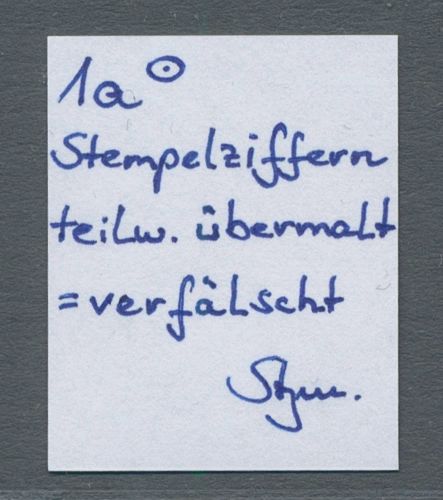 1a ⊙
Stempelziffern
teilw. übermalt
=verfälscht